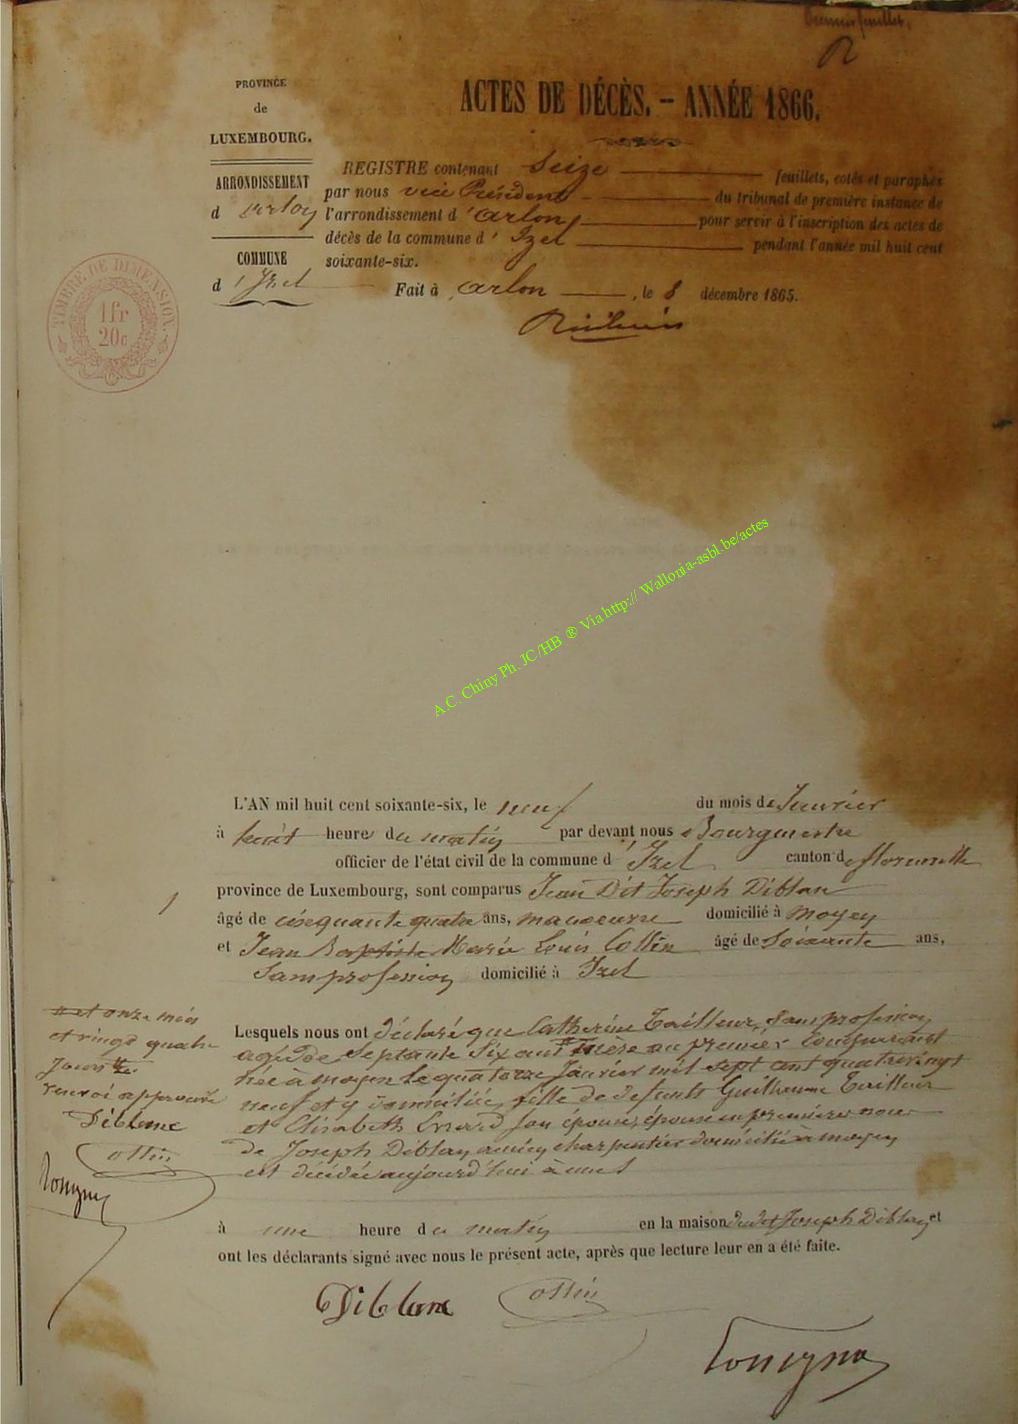 Premier feuillet.
PROVINCE
de
LUXEMBOURG.
ARRONDISSEMENT
d'Arlon
COMMUNE
d'Izel
ACTES DE DÉCÈS. - ANNÉE 1866.
REGISTRE contenant Seize feuillets, cotés et paraphés
par nous vice Président du tribunal de première instance de
l'arrondissement d'Arlon pour servir à l'inscription des actes de
décès de la commune d'Izel pendant l'année mil huit cent
soixante-six.
Fait à Arlon, le 8 décembre 1865.
TIMBRE DE DIMENSION.
1fr
20c
A.C. Chiny Ph. JC/HB ® Via http:// Wallonia-asbl.be/actes
L'AN mil huit cent soixante-six, le neuf du mois de Janvier
à huit heures du matin par devant nous Bourgmestre
officier de l'état civil de la commune d'Izel canton de florenville
1
province de Luxembourg, sont comparus Jean Dit Joseph Diblan
âgé de cinquante quatre ans, manoeuvre domicilié à moyen
et Jean Baptiste Marie Louis Collin âgé de soixante ans,
Sans profession domicilié à Izel
Lesquels nous ont déclaré que Catherine Tailleur, Sans profession
agée de Septante Six ans # mère au premier comparant
née à moyen le quatorze Janvier mil sept cent quatrevingt
neuf et y domiciliée, fille de defunts Guillaume Tailleur
et Elisabeth Errard son épouse, épouse en premiere noce
de Joseph Diblan ancien charpentier domicilié à moyen
est décédée aujourd'hui à une
# et onze mois
et vingt quatre
jours
renvoi approuvé
Diblame
Collin
à une heure du matin en la maison dudit Joseph Diblan et
ont les déclarants signé avec nous le présent acte, après que lecture leur en a été faite.
Diblame Collin